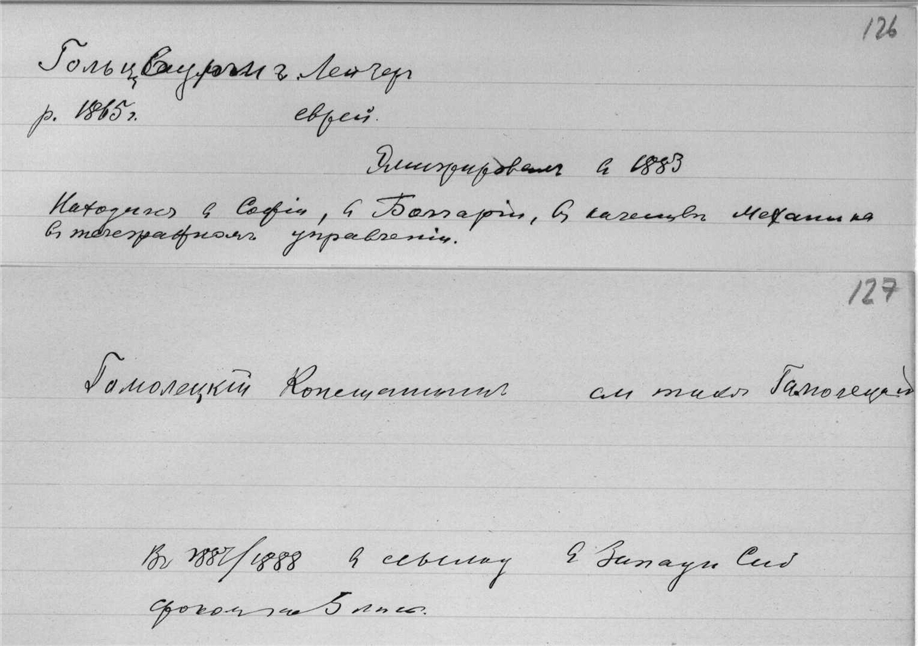 126
Гольцвурмъ Лейзеръ
р. 1865 г. еврей.
Эмигрировалъ в 1883
Находился в Софіи, в Болгаріи, въ качествѣ механика
въ телеграфномъ управленіи.
127
Гомолецкій Константинъ см также Гамолецкій
Въ 1887/1888 в ссылку в Западн Сиб
срокомъ на 5 лѣтъ.